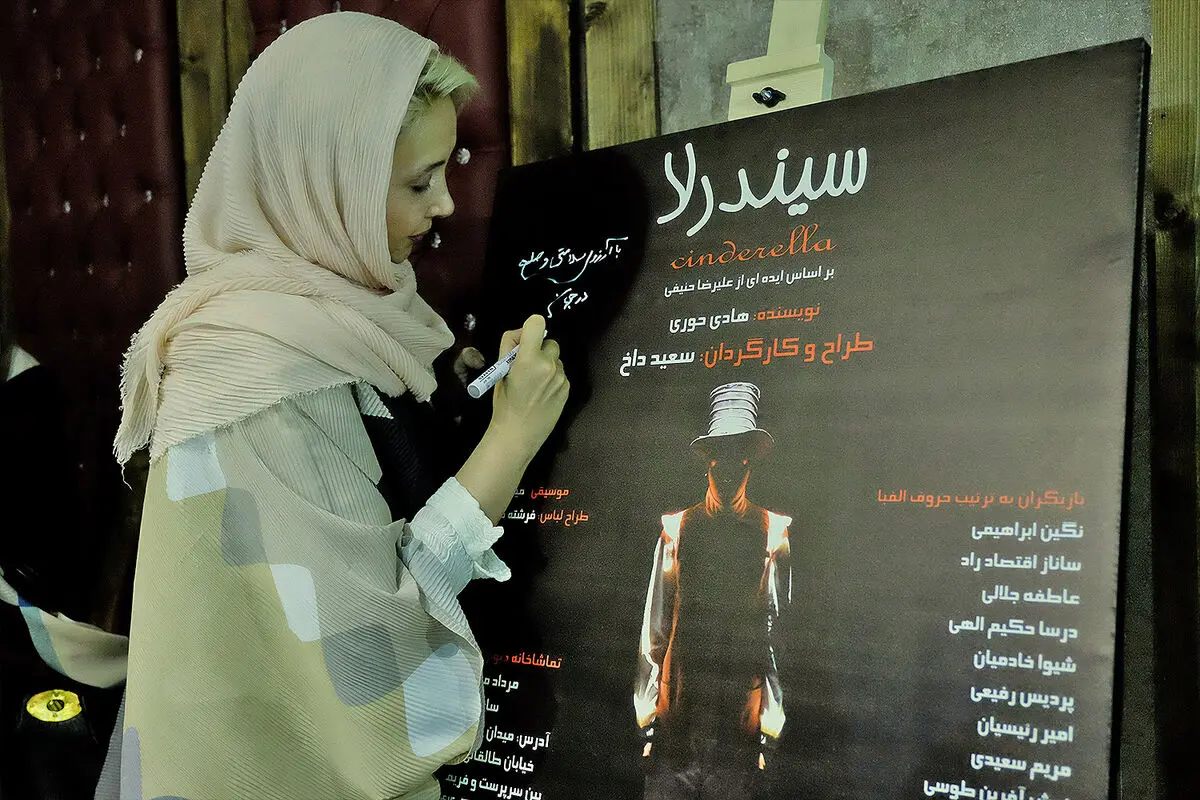 سیندرلا
cinderella
بر اساس ایده ای از علیرضا حنیفی
نویسنده: هادی حوری
طراح و کارگردان: سعید داخ
با آرزوی سلامتی و صلح
در جهان
موسیقی
طراح لباس: فرشته
تماشاخانه
مرداد
آدرس: میدان
خیابان طالقانی
بین سرپرست و فریم
بازیگران به ترتیب حروف الفبا
نگین ابراهیمی
ساناز اقتصاد راد
عاطفه جلالی
درسا حکیم الهی
شیوا خادمیان
پردیس رفیعی
امیر رئیسیان
مریم سعیدی
آفرین طوسی